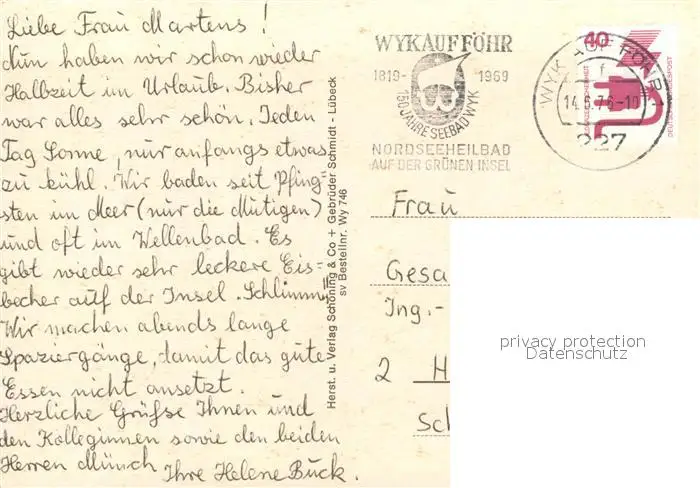 Liebe Frau Martens!
Nun haben wir schon wieder
Halbzeit im Urlaub. Bisher
war alles sehr schön. Jeden
Tag Sonne, nur anfangs etwas
zu kühl. Wir baden seit Pfing-
sten im Meer (nur die Mutigen)
und oft im Wellenbad. Es
gibt wieder sehr leckere Eis=
becher auf der Insel. Schlimm!!
Wir machen abends lange
Spaziergänge, damit das gute
Essen nicht ansetzt.
Herzliche Grüße Ihnen und
den Kolleginnen sowie den beiden
Herren Münch Ihre Helene Buck.
Herst. u. Verlag Schöning & Co + Gebrüder Schmidt - Lübeck
sv Bestellnr. Wy 746
WYK AUF FÖHR
1819- 1969
150 JAHRE SEEBAD WYK
NORDSEEHEILBAD
AUF DER GRÜNEN INSEL
WYK AUF FÖHR 1
f
14.6.76-10
227
40
DEUTSCHE BUNDESPOST
Frau
Gesa
Ing.-
2 H
Sch
privacy protection
Datenschutz